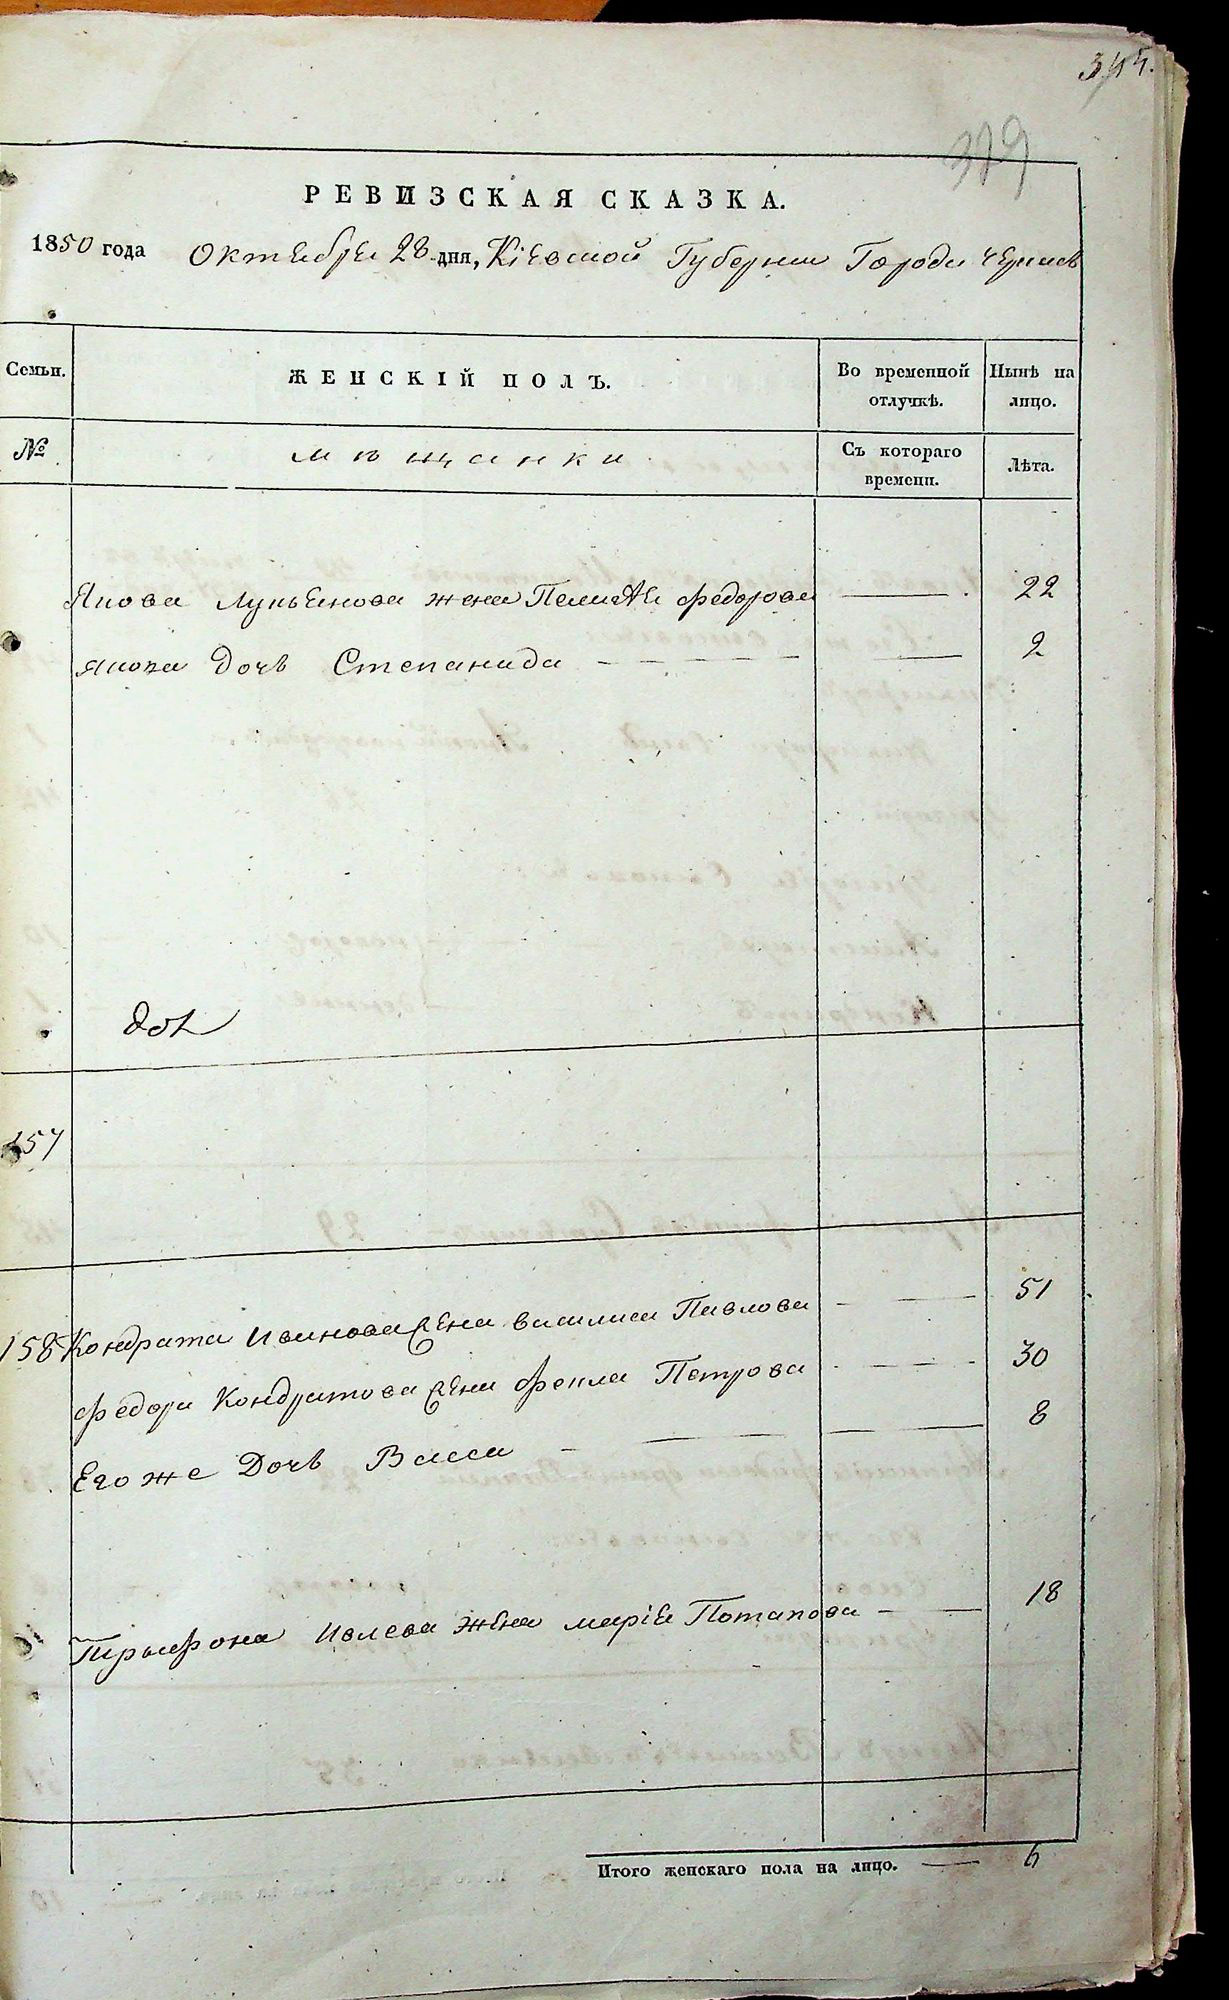 379
РЕВИЗСКАЯ СКАЗКА.
1850 года Октебре 28 дня, Кіевской Губернии Города
Семьи. ЖЕНСКІЙ ПОЛЪ. Во временной отлучкѣ. Нынѣ на лицо.
№ мѣщанки Съ котораго времени. Лѣта.
Якова Лукьенова жена Пелагѣе Федорова 22
Якова Дочь Степанида 2
157
158 Кондрата Иванова жена василиса Павлова 51
Федора Кондратова жена Фекла Петрова 30
Его же Дочь Васса 8
Иевлева жена маріе Потапова 18
Итого женскаго пола на лицо. 6